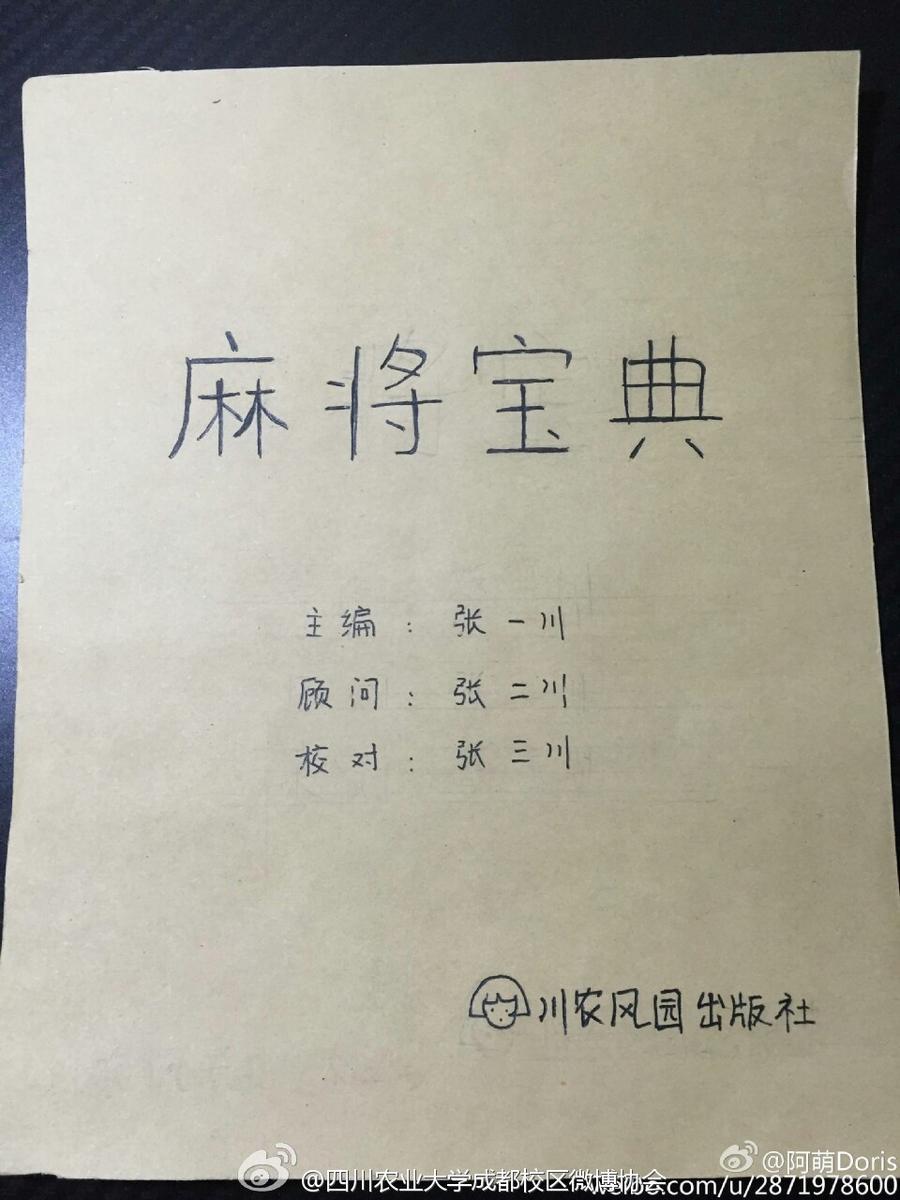 麻将宝典
主编：张一川
顾问：张二川
校对：张三川
川农风园出版社
@阿萌Doris
@四川农业大学成都校区微博协会
weibo.com/u/2871978600